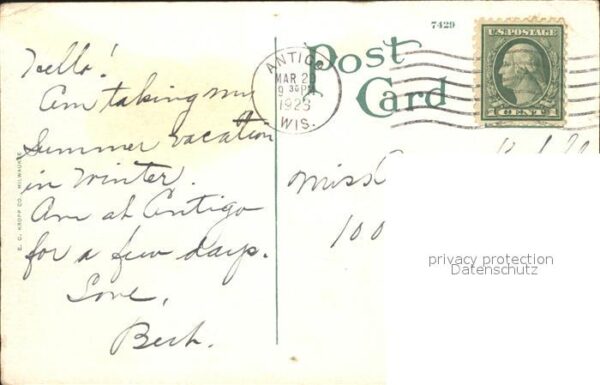 Hello!
Am taking my
Summer vacation
in Winter.
Am at Antigo
for a few days.
Love,
7429
Post
Card
ANTIGO
MAR 20
9 30 PM
1923
WIS.
U.S. POSTAGE
1 CENT 1
Miss
100
E. C. KROPP CO., MILWAUKEE
privacy protection
Datenschutz